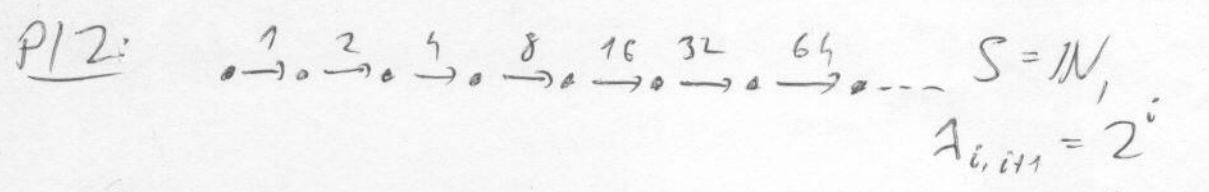 Př: 1 2 4 8 16 32 64 S = ℕ,
λ_{i,i+1} = 2^i